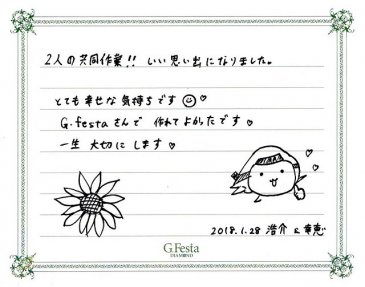 2人の共同作業!! いい思い出になりました。
とても幸せな気持ちです ♡
G.festaさんで 作れてよかったです♡
一生 大切に します♡
2018.1.28 浩介 & 幸恵
G.Festa
DIAMOND